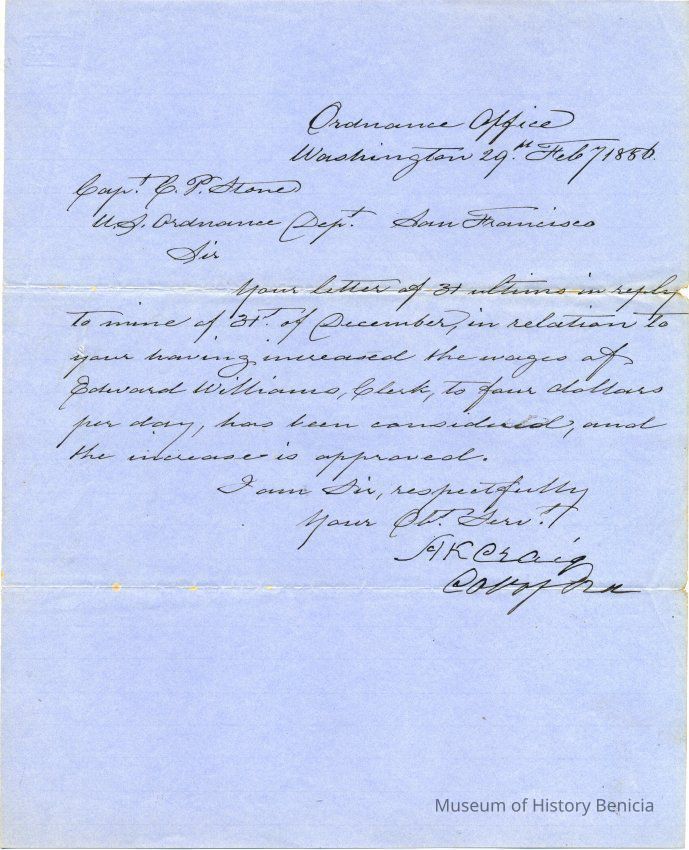 Ordnance Office
Washington 29th Feby 1856.
Capt. C. P. Stone
U.S. Ordnance Dept. San Francisco
Sir
Your letter of 31 ultimo in reply
to mine of 31st. of December, in relation to
your having increased the wages of
Edward Williams, Clerk, to four dollars
per day, has been considered, and
the increase is approved.
I am Sir, respectfully
Your Obt. Servt.
HK Craig
Col of Ord
Museum of History Benicia